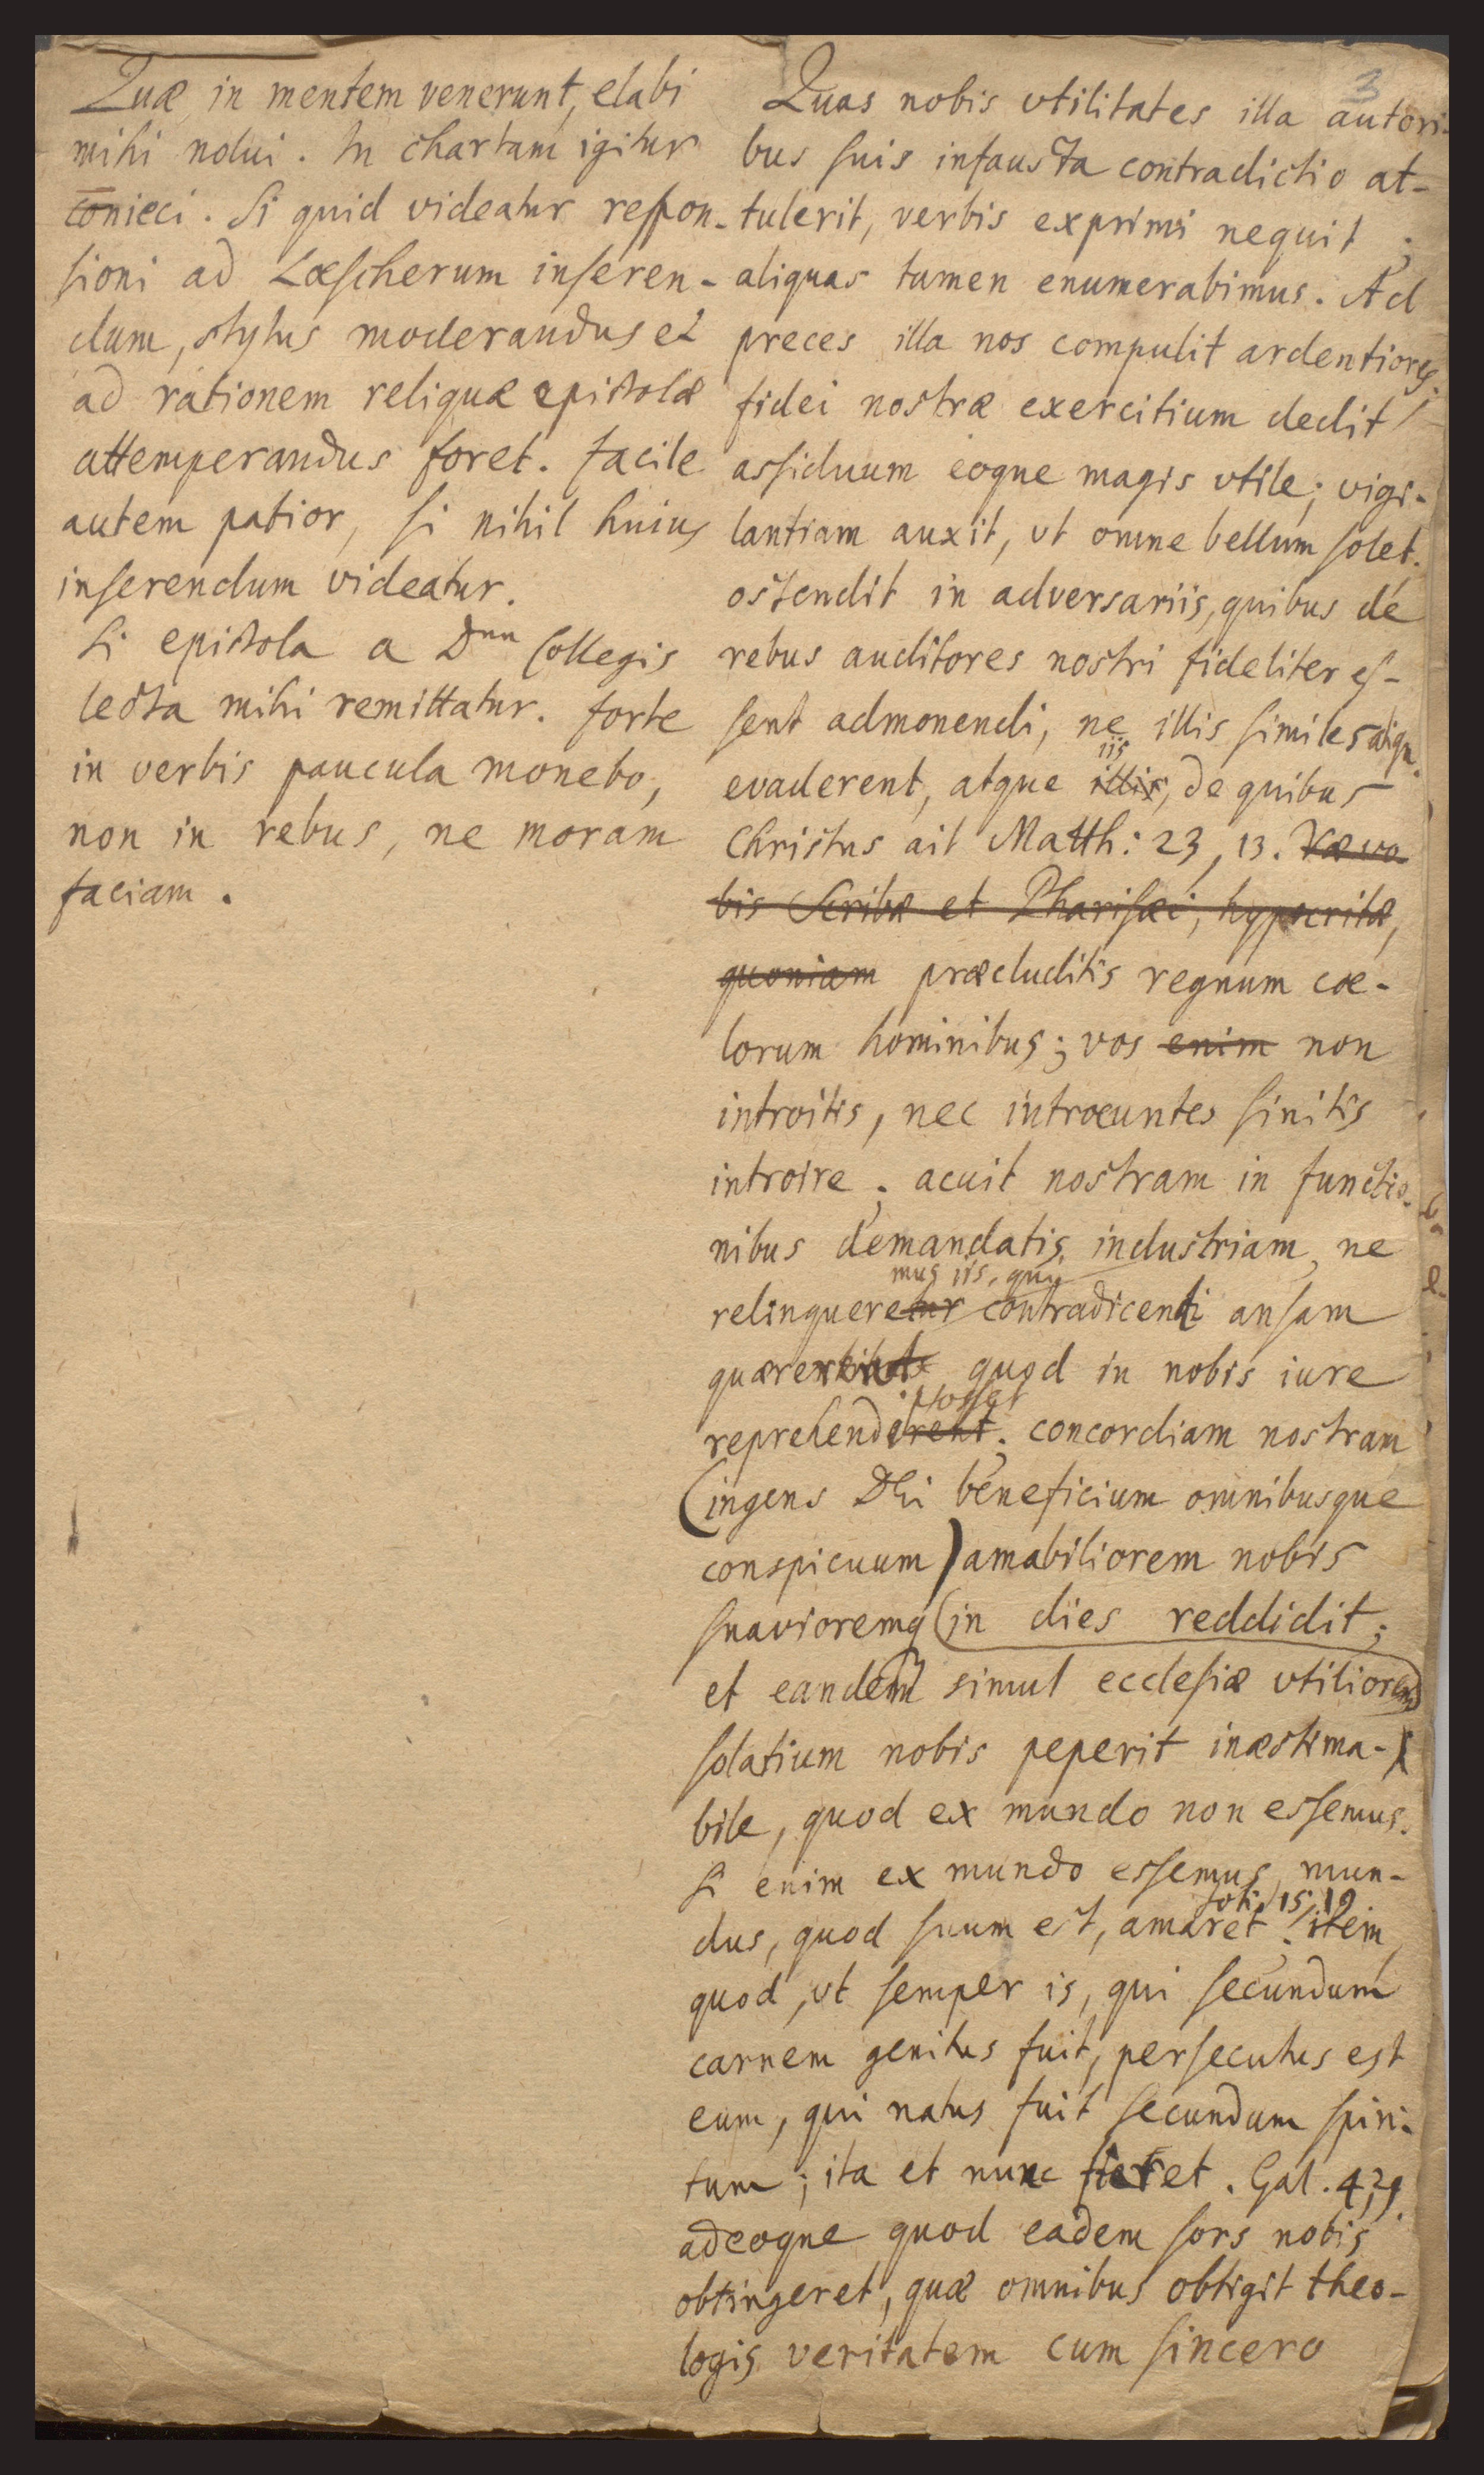 3
Quæ in mentem venerunt, elabi
mihi nolui. In chartam igitur
conieci. Si quid videatur respon-
sioni ad Lœscherum inseren-
dum, stylus moderandus et
ad rationem reliquæ epistolæ
attemperandus foret. facile
autem patior, si nihil huius
inserendum videatur.
Si epistola a Dnn Collegis
lecta mihi remittatur. forte
in verbis paucula monebo,
non in rebus, ne moram
faciam.
Quas nobis vtilitates illa autori-
bus suis infausta contradictio at-
tulerit, verbis exprimi nequit;
aliquas tamen enumerabimus. Ad
preces illa nos compulit ardentiores;
fidei nostræ exercitium dedit
assiduum eoque magis vtile; vigi-
lantiam auxit, vt omne bellum solet.
ostendit in adversariis, quibus de
rebus auditores nostri fideliter es-
sent admonendi, ne illis similes aliqu.
iis
evaderent, atque illis, de quibus
Christus ait Matth: 23, 13. Væ vo-
bis Scribæ et Pharisæi, hypocritæ,
quoniam præcluditis regnum cœ-
lorum hominibus; vos enim non
introitis, nec introeuntes sinitis
introire; acuit nostram in functio-
nibus demandatis industriam, ne
mus iis, qui
relinqueretur contradicenti ansam
quærent quod in nobis iure
posset
reprehenderent; concordiam nostram
(ingens DEi beneficium omnibusque
conspicuum) amabiliorem nobis
suavioremq (in dies reddidit;
et eandem simul ecclesiæ vtiliorem)
solatium nobis peperit inæstima-
bile, quod ex mundo non essemus.
Si enim ex mundo essemus, mun-
Joh. 15, 19
dus, quod suum est, amaret; item,
quod, vt semper is, qui secundum
carnem genitus fuit, persecutus est
eum, qui natus fuit secundum spiri-
tum; ita et nunc fieret. Gal. 4,29.
adeoque quod eadem sors nobis
obtingeret, quæ omnibus obtigit theo-
logis veritatem cum sincero